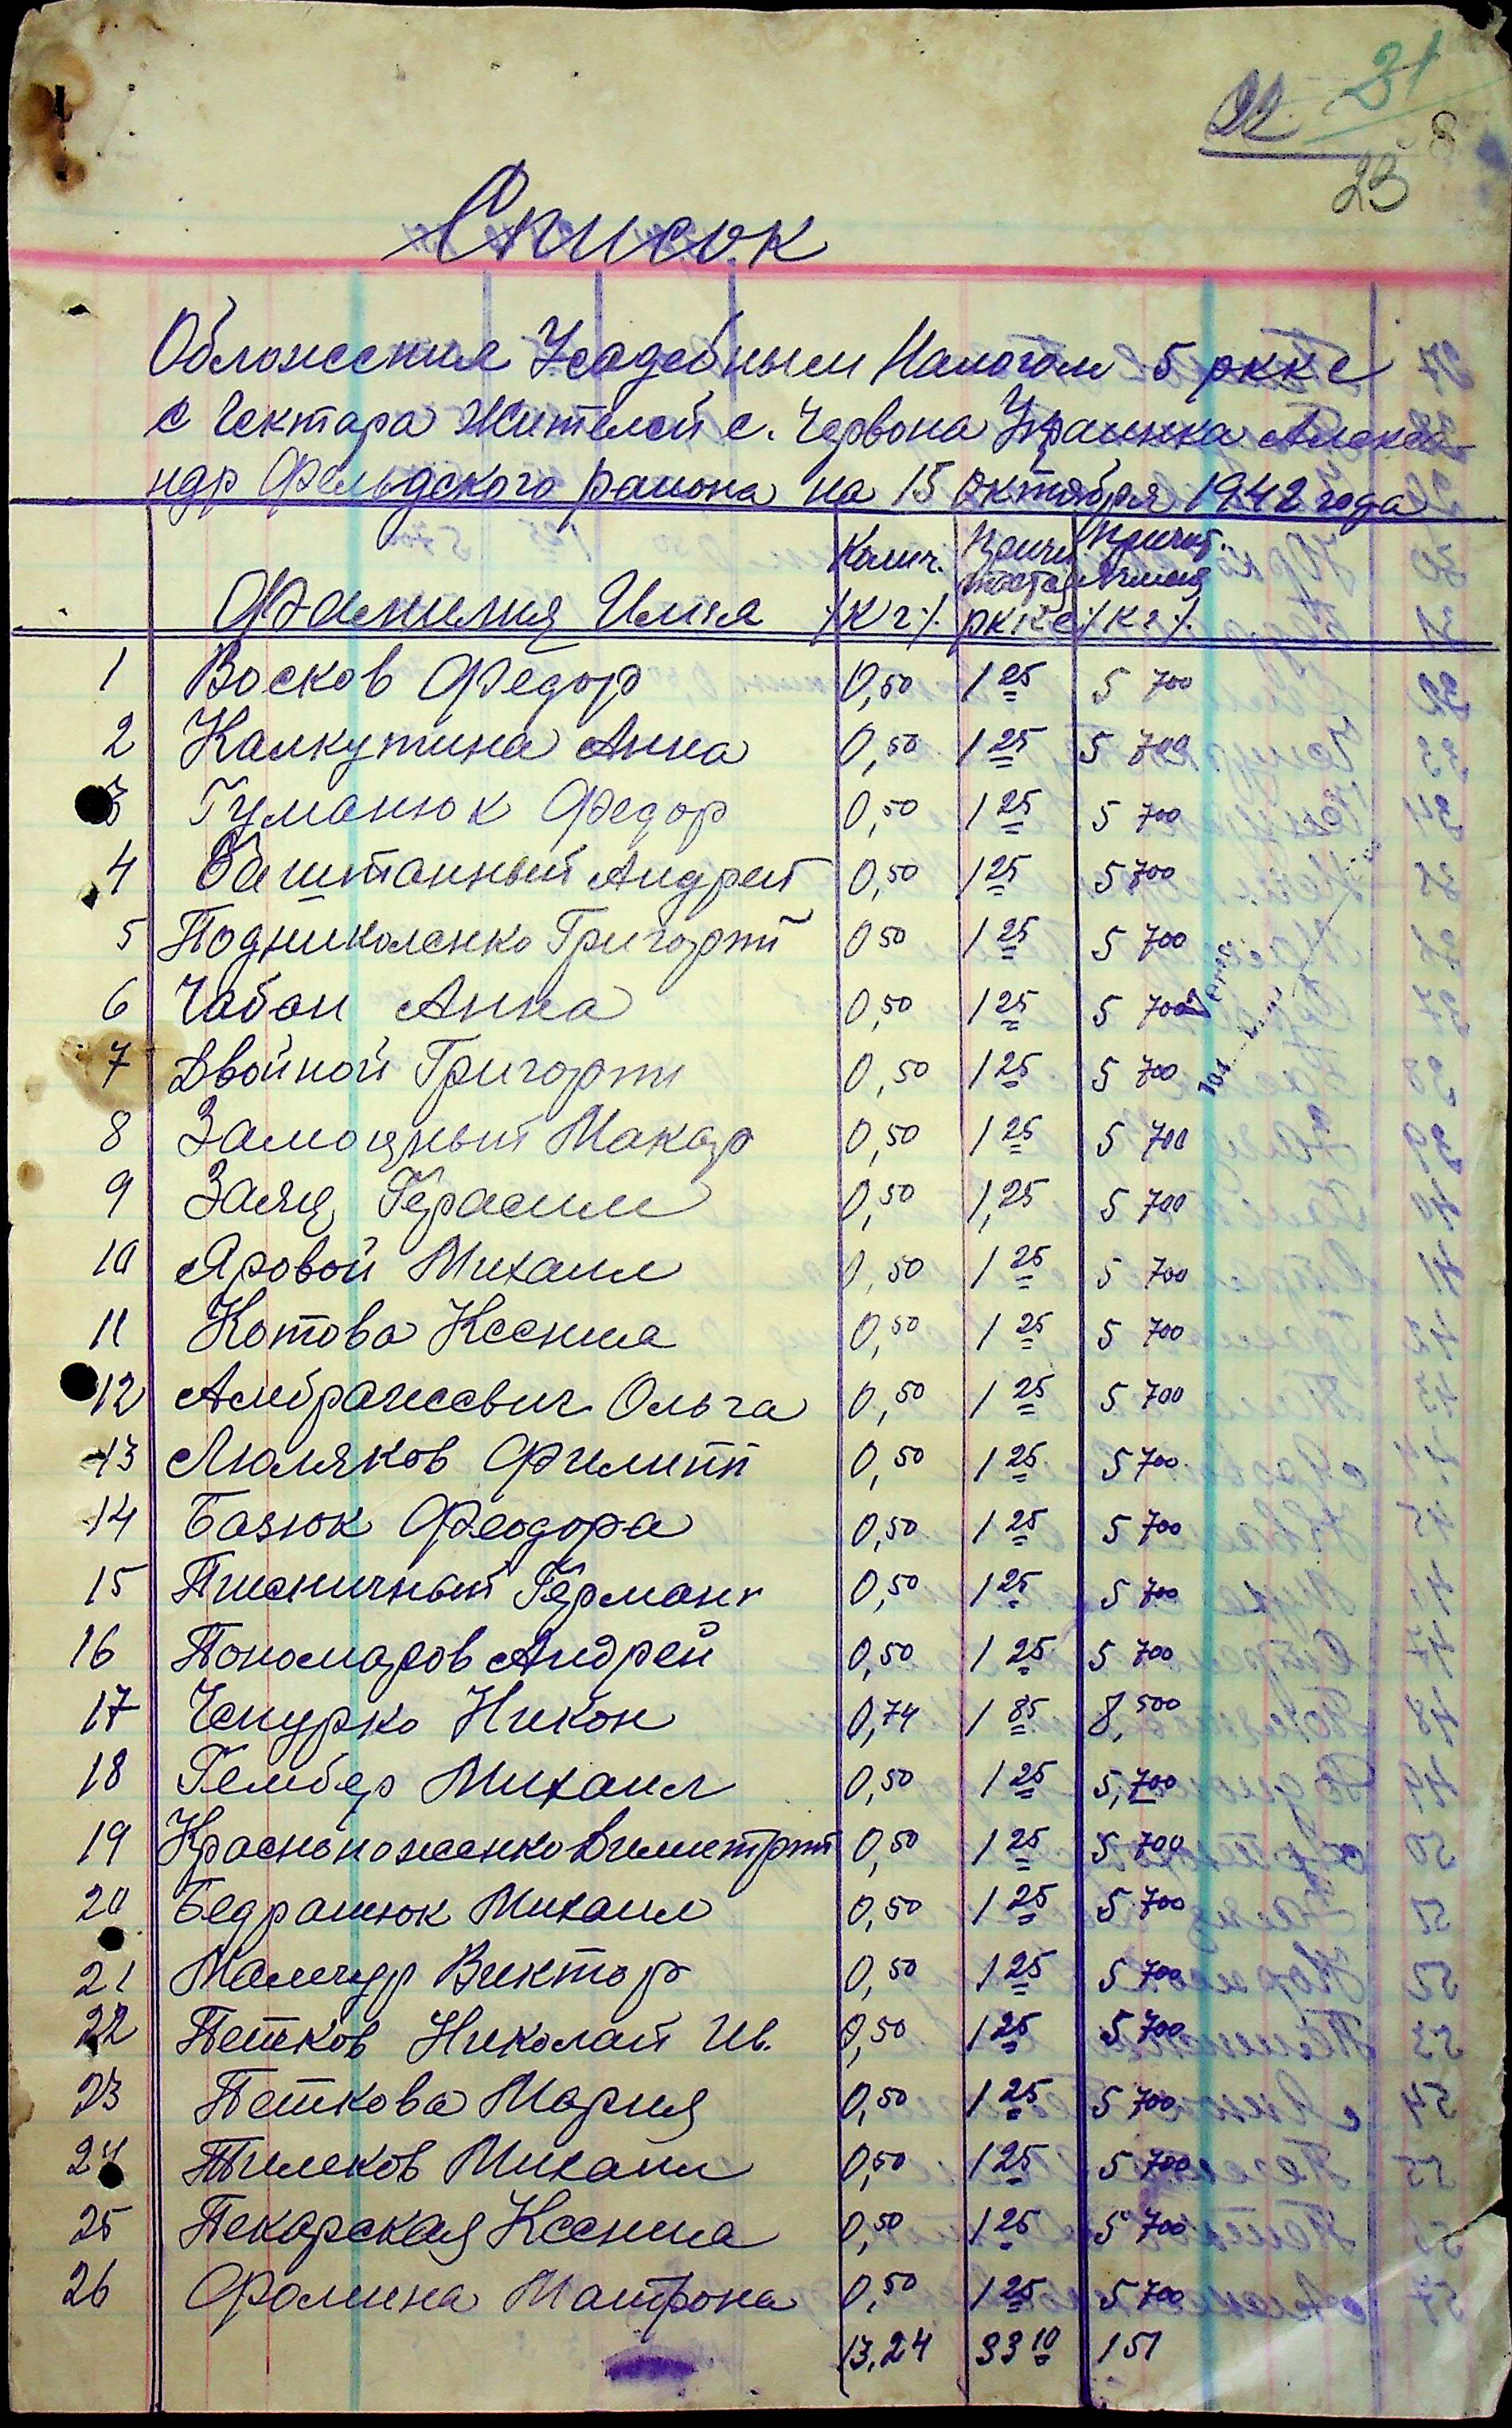 22 31
23 8
Список
Обложения Усадебным Налогом 5 ркке
с Гектара Жителей с. Червона Украинка Алекса
ндр Фельдского района на 15 октября 1942 года
Колич. Причи Причит.
тается Ячменя
Фамилия Имя /кг/. рк/ке /кг/.
1 Восков Федор 0,50 1 25 5 700
2 Калкутина Анна 0,50 1 25 5 700
3 Гуманюк Федор 0,50 1 25 5 700
4 Баштанный Андрей 0,50 1 25 5 700
5 Подниколенко Григорий 0 50 1 25 5 700
6 Чабан Анна 0,50 1 25 5 700
7 Двойной Григорий 0,50 1 25 5 700
8 Замоцный Макар 0,50 1 25 5 700
9 Заяц Герасим 0,50 1,25 5 700
10 Яровой Михаил 0,50 1 25 5 700
11 Котова Ксения 0,50 1 25 5 700
12 Амбражевич Ольга 0,50 1 25 5 700
13 Люляков Филипп 0,50 1 25 5 700
14 Базюк Феодора 0,50 1 25 5 700
15 Пшеничный Герман 0,50 1 25 5 700
16 Пономаров Андрей 0,50 1 25 5 700
17 Чепурко Никон 0,74 1 85 8,500
18 Гембер Михаил 0,50 1 25 5,700
19 Красноноженко Димитрий 0,50 1 25 5 700
20 Бедрашюк Михаил 0,50 1 25 5 700
21 Мамчур Виктор 0,50 1 25 5 700
22 Петков Николай Ив. 0,50 1 25 5 700
23 Петкова Мария 0,50 1 25 5 700
24 Тилеков Михаил 0,50 1 25 5 700
25 Пекарская Ксения 0,50 1 25 5 700
26 Фомина Матрона 0,50 1 25 5 700
13,24 33 10 151